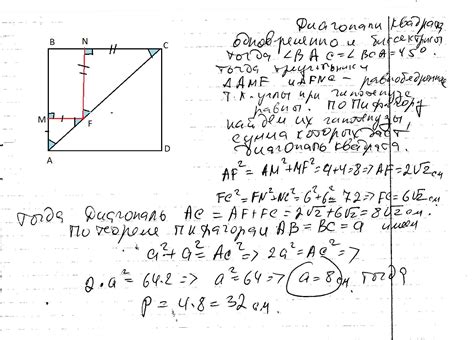 B N C
M F
A D
Диагонали квадрата
одновременно и биссектрисы
тогда ∠BAC=∠BCA=45°.
тогда треугольники
△AMF и △FNC - равнобедренные
т.к. углы при гипотенузе
равны. По Пифагору
найдем их гипотенузы,
сумма которых даст
диагональ квадрата.
AF²=AM²+MF²=4+4=8=>AF=2√2 см
FC²=FN²+NC²=6²+6²=72=>FC=6√2 см
Тогда Диагональ AC=AF+FC=2√2+6√2=8√2 см.
По теореме Пифагора AB=BC=a имеем
a²+a²=AC²=>2a²=AC²=>
2·a²=64·2=>a²=64=>a=8 см, тогда
P=4·8=32 см.